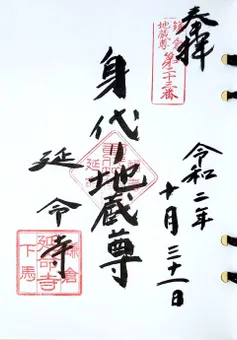 奉拝
鎌倉
地蔵尊
第二十三番
令和二年
十月三十一日
身代り地蔵尊
延命寺
鎌倉
延命寺
下馬